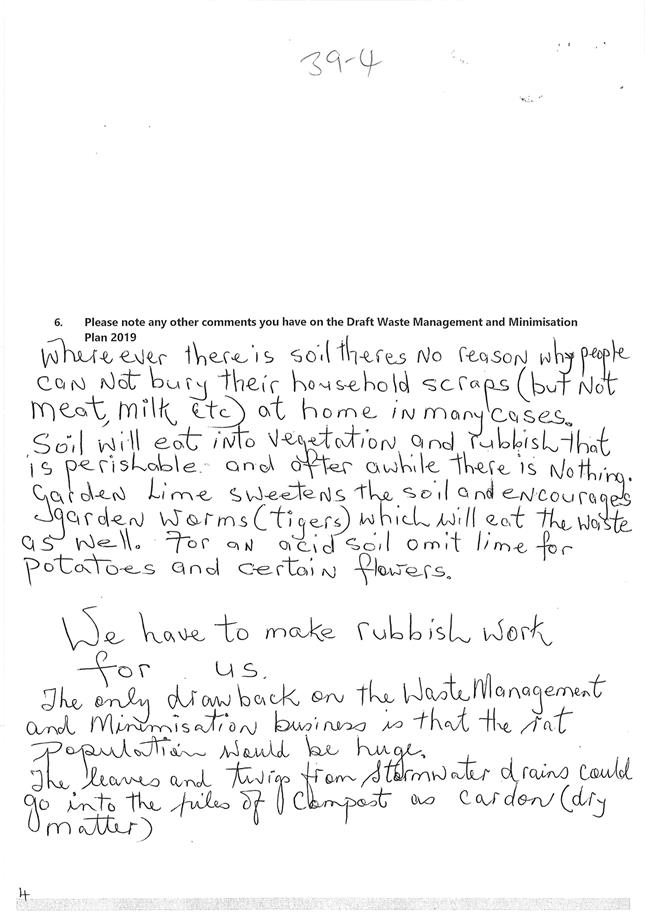 39-4
6. Please note any other comments you have on the Draft Waste Management and Minimisation
Plan 2019
Where ever there is soil theres no reason why people
can not bury their household scraps (but not
meat, milk etc) at home in many cases.
Soil will eat into vegetation and rubbish that
is perishable. and after awhile there is nothing.
Garden Lime sweetens the soil and encourages
garden worms (tigers) which will eat the waste
as well. For an acid soil omit lime for
potatoes and certain flowers.
We have to make rubbish work
for us.
The only drawback on the Waste Management
and Minimisation business is that the rat
population would be huge.
The leaves and twigs from Stormwater drains could
go into the piles of compost as cardon (dry
matter)
4